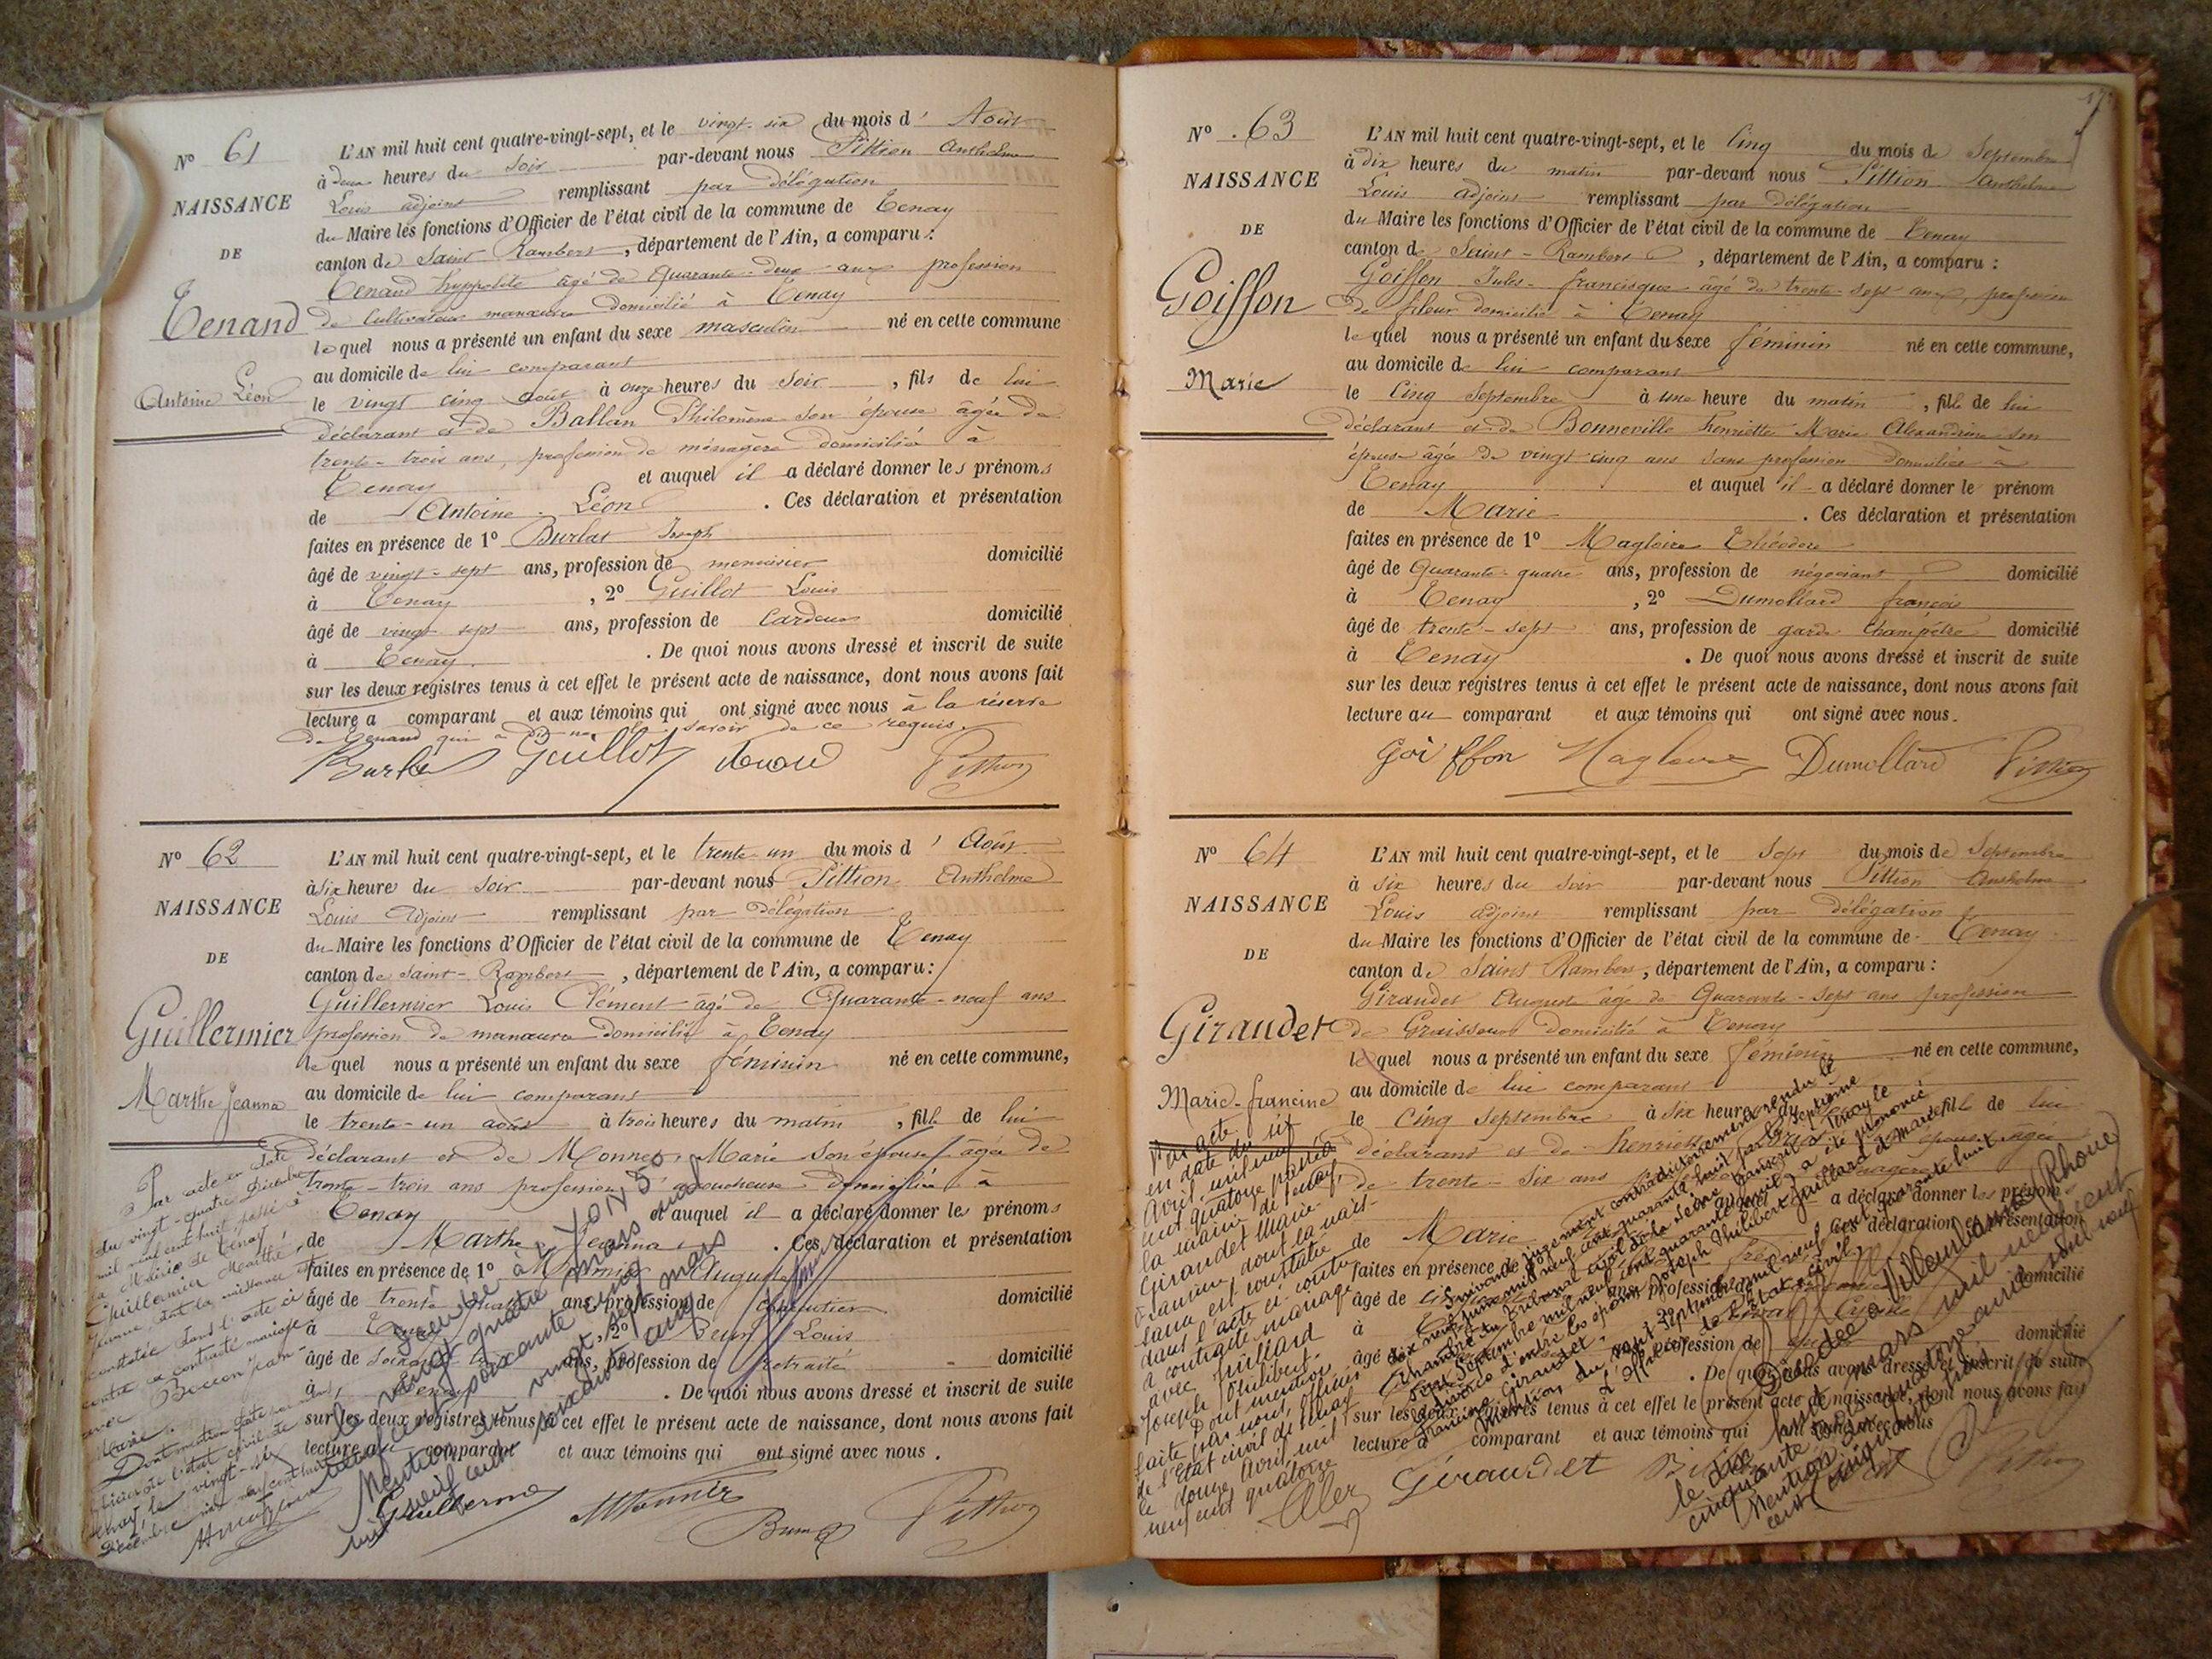 N° 61
NAISSANCE
DE
Tenand
Antoine Léon
L'AN mil huit cent quatre-vingt-sept, et le vingt-six du mois d' Août
à deux heures du soir par-devant nous Pittion Anthelme
Louis adjoint remplissant par délégation
du Maire les fonctions d'Officier de l'état civil de la commune de Tenay
canton de Saint-Rambert, département de l'Ain, a comparu :
Tenand hyppolite âgé de quarante-deux ans profession
de Cultivateur manœuvre domicilié à Tenay
lequel nous a présenté un enfant du sexe masculin né en cette commune
au domicile de lui comparant
le vingt cinq août à onze heures du soir, fils de lui
déclarant et de Ballan Philomène son épouse âgée de
trente-trois ans, profession de ménagère domiciliée à
Tenay et auquel il a déclaré donner les prénoms
de Antoine Léon. Ces déclaration et présentation
faites en présence de 1° Burlat Joseph
âgé de vingt-sept ans, profession de menuisier domicilié
à Tenay, 2° Guillot Louis
âgé de vingt sept ans, profession de Cardeur domicilié
à Tenay. De quoi nous avons dressé et inscrit de suite
sur les deux registres tenus à cet effet le présent acte de naissance, dont nous avons fait
lecture a comparant et aux témoins qui ont signé avec nous à la réserve
de Tenand qui a dit ne savoir de ce requis.
Guillot Pittion
N° 62
NAISSANCE
DE
Guillermier
Marthe Jeanna
L'AN mil huit cent quatre-vingt-sept, et le trente-un du mois d' Août
à six heures du soir par-devant nous Pittion Anthelme
Louis adjoint remplissant par délégation
du Maire les fonctions d'Officier de l'état civil de la commune de Tenay
canton de Saint-Rambert, département de l'Ain, a comparu :
Guillermier Louis Clément âgé de Quarante-neuf ans
profession de manœuvre domicilié à Tenay
lequel nous a présenté un enfant du sexe féminin né en cette commune,
au domicile de lui comparant
le trente-un août à trois heures du matin, fille de lui
déclarant et de Monnet Marie son épouse âgée de
trente-trois ans profession domiciliée à
Tenay et auquel il a déclaré donner les prénoms
de Marthe Jeanna. Ces déclaration et présentation
faites en présence de 1° Auguste
âgé de trente ans, profession de domicilié
à Tenay, 2° Louis
âgé de ans, profession de retraité domicilié
à Tenay. De quoi nous avons dressé et inscrit de suite
sur les deux registres tenus à cet effet le présent acte de naissance, dont nous avons fait
lecture au comparant et aux témoins qui ont signé avec nous.
Pittion
Par acte en date
du vingt-quatre Décembre
mil neuf cent huit, passé à
la Mairie de Tenay,
Guillermier Marthe
Jeanna, dont la naissance est
constatée dans l'acte ci
contre a contracté mariage
avec Boccon Jean-
Marie.
Dont mention faite par nous,
officier de l'état civil de
Tenay, le vingt-six
Décembre mil neuf cent huit
Décédée à LYON 5°
le vingt quatre Mars mil
neuf cent soixante cinq
Mention du vingt sept mars
mil neuf cent soixante cinq
N° 63
NAISSANCE
DE
Goiffon
Marie
L'AN mil huit cent quatre-vingt-sept, et le Cinq du mois de Septembre
à dix heures du matin par-devant nous Pittion Anthelme
Louis adjoint remplissant par délégation
du Maire les fonctions d'Officier de l'état civil de la commune de Tenay
canton de Saint-Rambert, département de l'Ain, a comparu :
Goiffon Jules-francisque âgé de trente-sept ans, profession
de fileur domicilié à Tenay
lequel nous a présenté un enfant du sexe féminin né en cette commune,
au domicile de lui comparant
le Cinq Septembre à une heure du matin, fille de lui
déclarant et de Bonneville henriette Marie Alexandrine son
épouse âgée de vingt-cinq ans sans profession domiciliée à
Tenay et auquel il a déclaré donner le prénom
de Marie. Ces déclaration et présentation
faites en présence de 1° Magloire Théodore
âgé de Quarante-quatre ans, profession de négociant domicilié
à Tenay, 2° Dumollard françois
âgé de trente-sept ans, profession de garde Champêtre domicilié
à Tenay. De quoi nous avons dressé et inscrit de suite
sur les deux registres tenus à cet effet le présent acte de naissance, dont nous avons fait
lecture au comparant et aux témoins qui ont signé avec nous.
Goiffon Magloire Dumollard Pittion
N° 64
NAISSANCE
DE
Giraudet
Marie-francine
L'AN mil huit cent quatre-vingt-sept, et le Sept du mois de Septembre
à six heures du soir par-devant nous Pittion Anthelme
Louis adjoint remplissant par délégation
du Maire les fonctions d'Officier de l'état civil de la commune de Tenay
canton de Saint Rambert, département de l'Ain, a comparu :
Giraudet August âgé de Quarante-sept ans profession
de Graisseur domicilié à Tenay
lequel nous a présenté un enfant du sexe féminin né en cette commune,
au domicile de lui comparant
le Cinq Septembre à six heures du, fille de lui
déclarant et de henriette épouse âgée
de trente-six ans ménagère
a déclaré donner les prénoms
de Marie. Ces déclaration et présentation
faites en présence de 1°
âgé de ans, profession domicilié
à
âgé de profession de domicilié
. De quoi nous avons dressé et inscrit de suite
sur les deux registres tenus à cet effet le présent acte de naissance, dont nous avons fait
lecture a comparant et aux témoins qui ont signé avec nous
Giraudet Pittion
Par acte
en date du six
Avril mil neuf
cent quatorze passé à
la mairie de Tenay,
Giraudet Marie-
Francine dont la nais-
sance est constatée
dans l'acte ci contre
a contracté mariage
avec Juillard
Joseph Philibert.
Dont mention
faite par nous, officier
de l'Etat civil de Tenay
le douze Avril mil
neuf cent quatorze
Suivant jugement contradictoirement rendu le
dix neuf juin mil neuf cent quarante huit par la septième
chambre du Tribunal civil de la Seine transcrit à Tenay le
sept Septembre mil neuf cent quarante huit, a été prononcé
le divorce d'entre les époux Joseph Philibert Juillard et Marie
Francine Giraudet.
Mention du sept Septembre mil neuf cent quarante huit
L'Officier de l'état civil,
Décédée à Villeurbanne (Rhône)
le dix huit mars mil neuf cent
cinquante trois.
Mention du quatorze avril mil neuf
cent cinquante trois